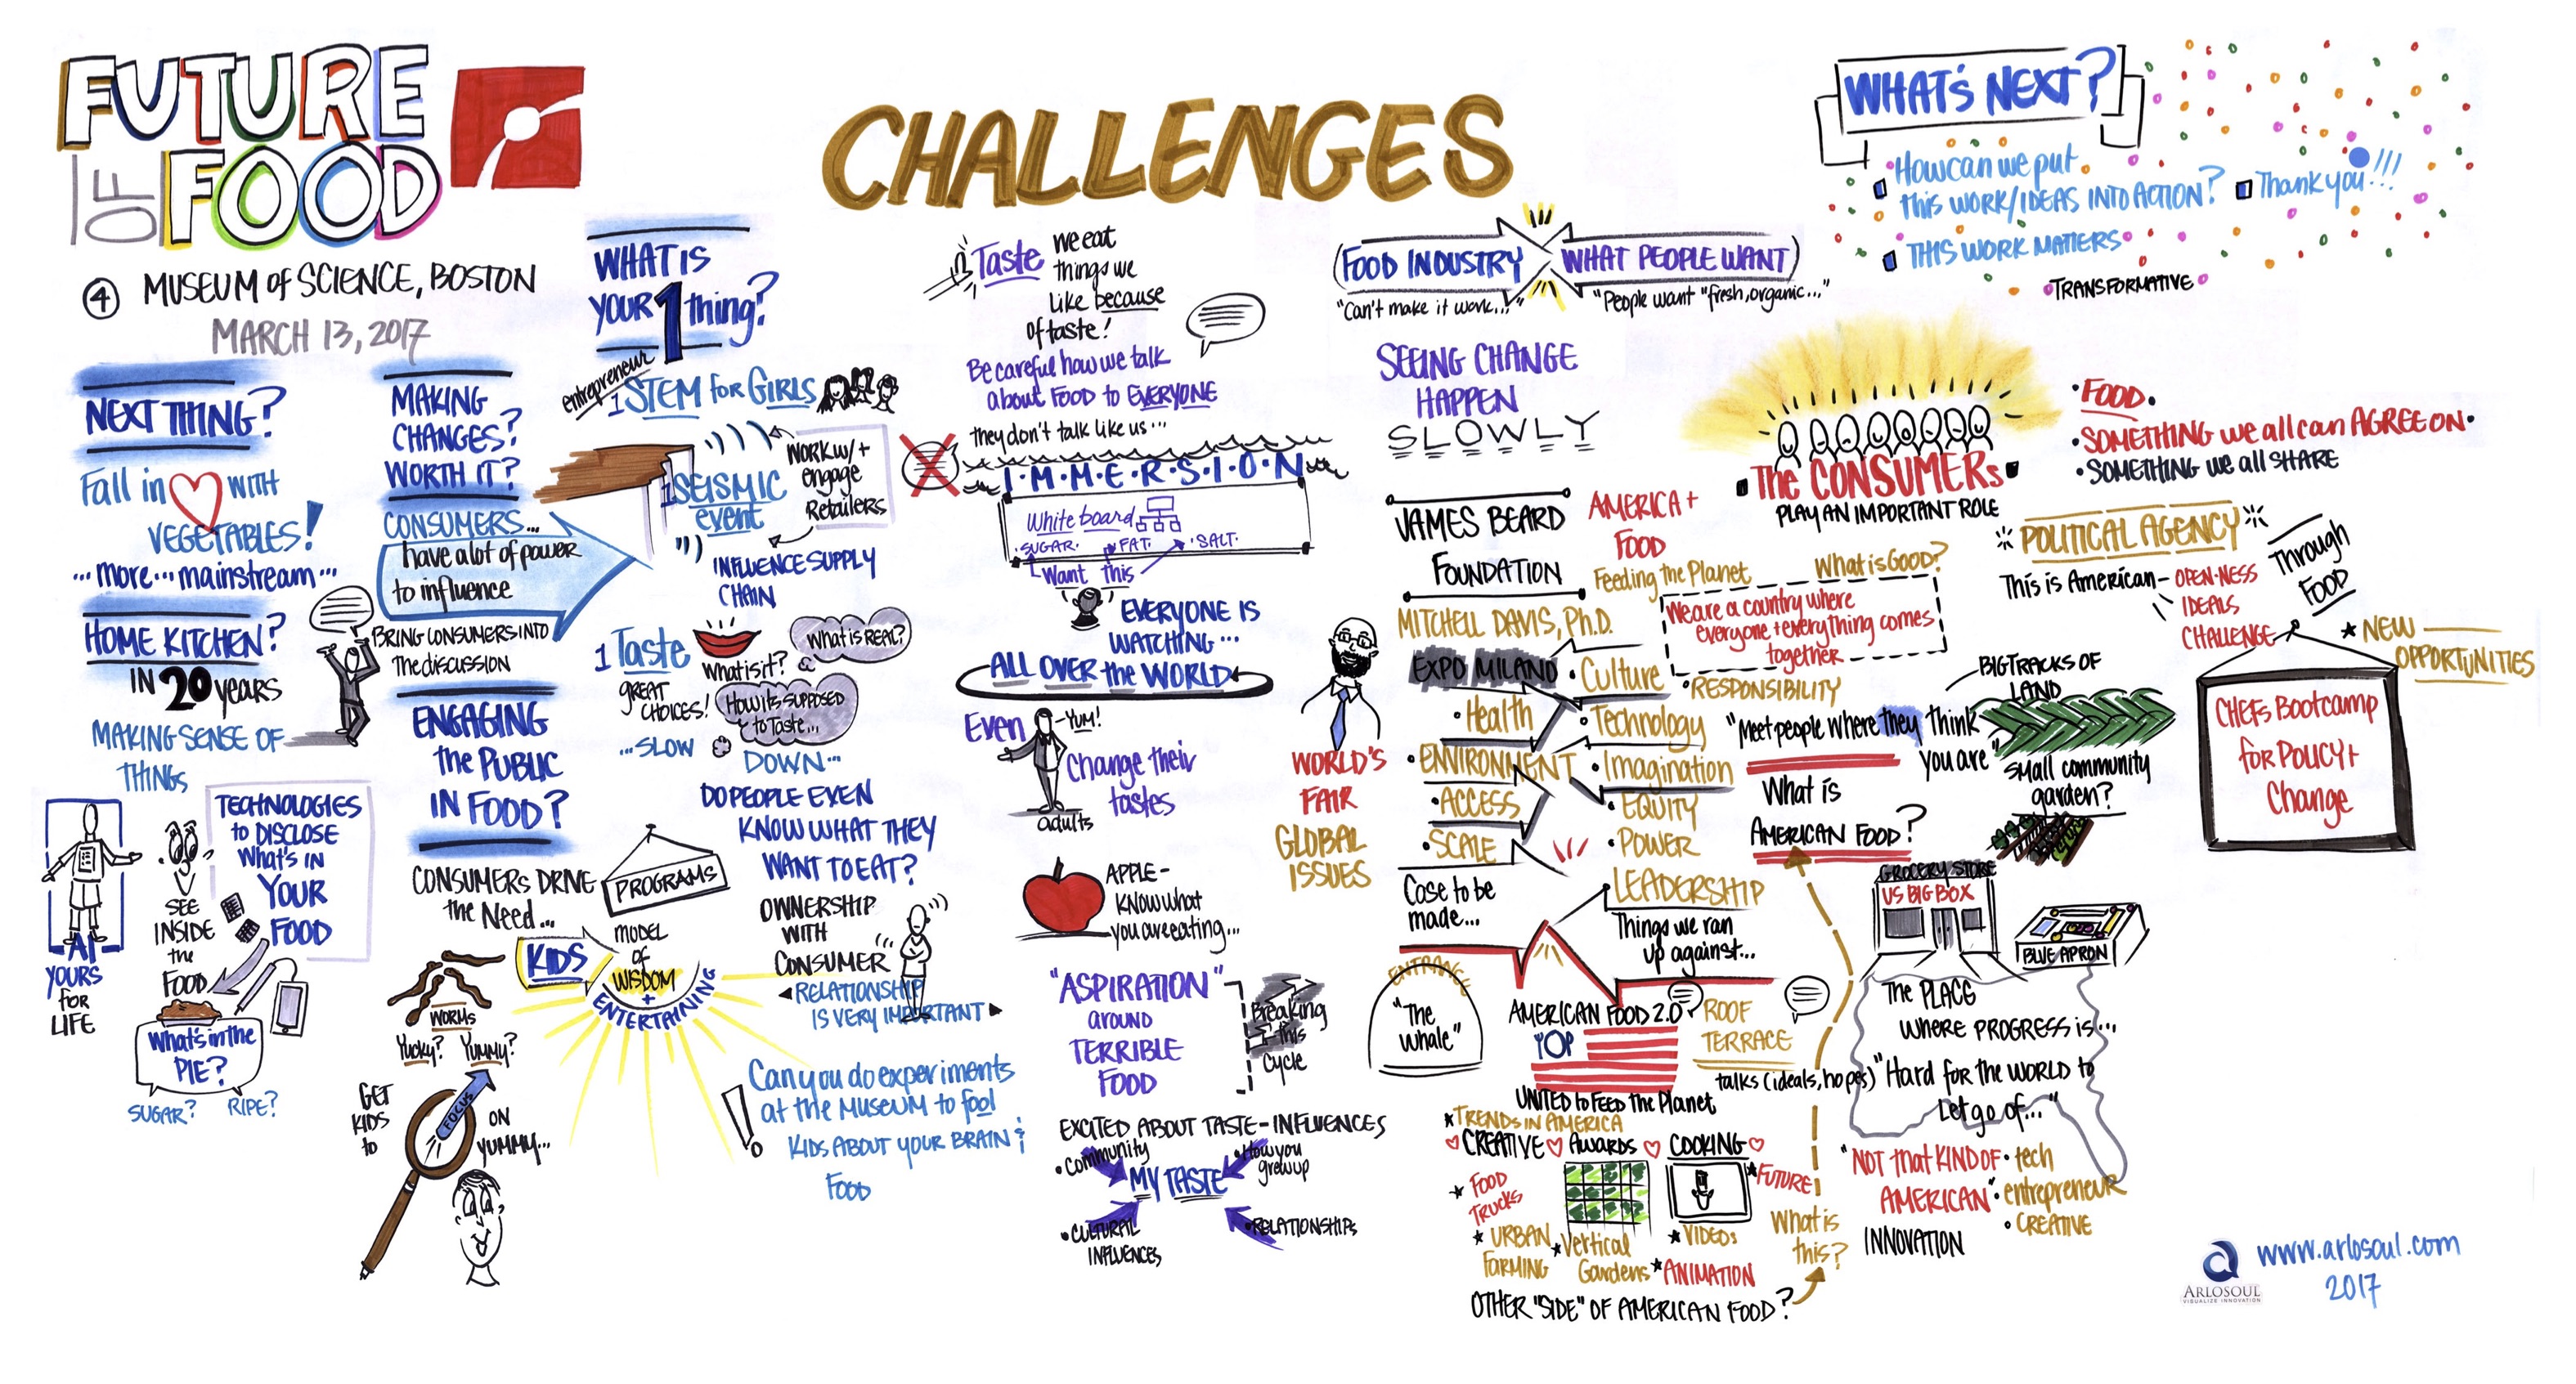 FUTURE
OF FOOD
④ MUSEUM of SCIENCE, BOSTON
MARCH 13, 2017
CHALLENGES
WHAT'S NEXT?
How can we put
this WORK/IDEAS INTO ACTION?
Thank you!!!
THIS WORK MATTERS
TRANSFORMATIVE
NEXT THING?
Fall in WITH
VEGETABLES!
...more...mainstream...
HOME KITCHEN?
IN 20 years
MAKING SENSE OF
THINGS
AI
YOURS
FOR
LIFE
SEE
INSIDE
the
FOOD
TECHNOLOGIES
to DISCLOSE
What's IN
YOUR
FOOD
What's in the
PIE?
SUGAR? RIPE?
MAKING
CHANGES?
WORTH IT?
CONSUMERS...
have a lot of power
to influence
BRING CONSUMERS INTO
The discussion
ENGAGING
the PUBLIC
IN FOOD?
CONSUMERS DRIVE
the Need...
PROGRAMS
KIDS
MODEL
of
WISDOM
+
ENTERTAINING
WORMS
Yucky? Yummy?
GET
KIDS
to
FOCUS
ON
YUMMY...
WHAT IS
YOUR 1 thing?
entrepreneur
1 STEM for GIRLS
1 SEISMIC
event
WORK W/+
engage
Retailers
INFLUENCE SUPPLY
CHAIN
1 Taste
GREAT
CHOICES!
What is it?
What is REAL?
How its SUPPOSED
to Taste...
...SLOW
DOWN...
DO PEOPLE EVEN
KNOW WHAT THEY
WANT TO EAT?
OWNERSHIP
WITH
CONSUMER
RELATIONSHIP
IS VERY IMPORTANT
Can you do experiments
at the Museum to fool
KIDS ABOUT YOUR BRAIN &
Food
Taste
we eat
things we
like because
of taste!
Be careful how we talk
about FOOD to EVERYONE
they don't talk like us...
I·M·M·E·R·S·I·O·N
White board
·SUGAR· ·FAT· ·SALT·
Want this
EVERYONE IS
WATCHING...
ALL OVER the WORLD
Even
-YUM!
adults
Change their
tastes
APPLE-
Know what
you are eating...
"ASPIRATION"
around
TERRIBLE
FOOD
Breaking
this
Cycle
EXCITED ABOUT TASTE-INFLUENCES
·Community
·How you
grew up
MY TASTE
·CULTURAL
INFLUENCES
·RELATIONSHIPS
FOOD INDUSTRY
"Can't make it work..."
WHAT PEOPLE WANT
"People want "fresh, organic..."
SEEING CHANGE
HAPPEN
SLOWLY
JAMES BEARD
FOUNDATION
MITCHELL DAVIS, Ph.D.
EXPO MILANO
WORLD'S
FAIR
GLOBAL
ISSUES
AMERICA +
FOOD
Feeding the Planet
What is GOOD?
We are a country where
everyone + everything comes
together
·Culture
·Health
·Technology
·ENVIRONMENT
·Imagination
·ACCESS
·EQUITY
·SCALE
·POWER
·LEADERSHIP
·RESPONSIBILITY
Case to be
made...
Things we ran
up against...
ENTRANCE
"The
Whale"
AMERICAN FOOD 2.0
YOP
UNITED to FEED the Planet
ROOF
TERRACE
talks (ideals, hopes)
TRENDS IN AMERICA
CREATIVE AWARDS COOKING
FOOD
TRUCKS
URBAN
FARMING
Vertical
Gardens
VIDEOS
ANIMATION
FUTURE
What is
this?
OTHER "SIDE" OF AMERICAN FOOD?
·The CONSUMERS·
PLAY AN IMPORTANT ROLE
·FOOD·
·SOMETHING we all can AGREE ON·
·SOMETHING we all SHARE
POLITICAL AGENCY
Through
FOOD
This is American-
OPEN-NESS
IDEALS
CHALLENGE
NEW
OPPORTUNITIES
CHEFs Bootcamp
for POLICY +
Change
"Meet people where they think
you are"
What is
AMERICAN FOOD?
BIG TRACKS OF
LAND
small community
garden?
GROCERY STORE
US BIG BOX
BLUE APRON
The PLACE
WHERE PROGRESS is...
"Hard for the WORLD to
Let go of..."
"NOT that KIND OF
AMERICAN"
·tech
·entrepreneur
·CREATIVE
INNOVATION
ARLOSOUL
VISUALIZE INNOVATION
www.arlosoul.com
2017